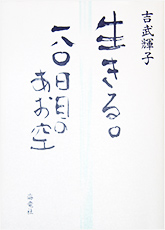 吉武輝子
生きる。
一八〇日目の
あお空
海竜社